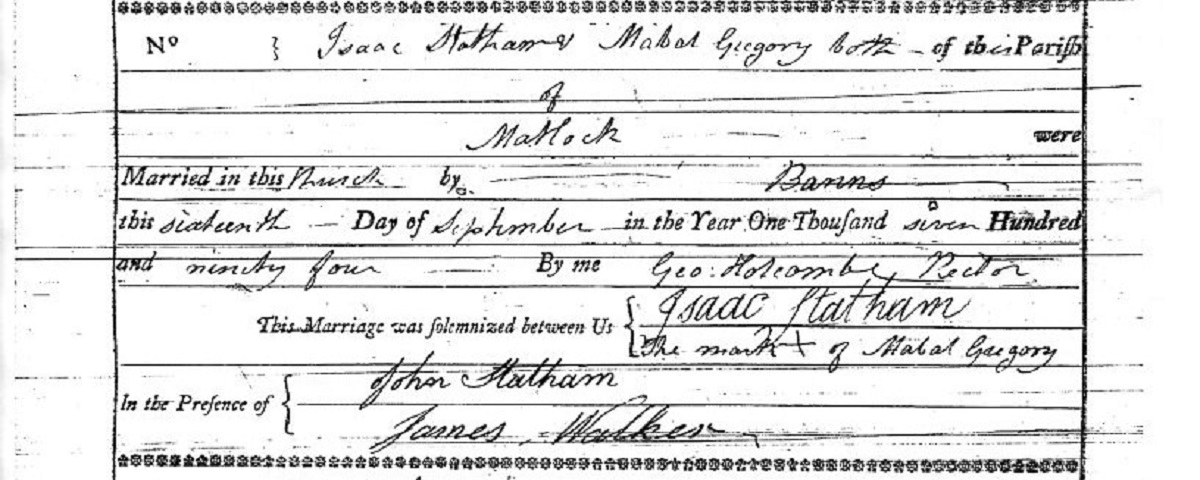 No } Isaac Statham & Mabal Gregory both - of this Pariſh
of
Matlock were
Married in this Church by Banns
this sixteenth - Day of September in the Year One Thouſand seven Hundred
and ninety four By me Geo: Holcombe, Rector
This Marriage was ſolemnized between Us { Isaac Statham
The mark + of Mabal Gregory
In the Preſence of { John Statham
James Walker